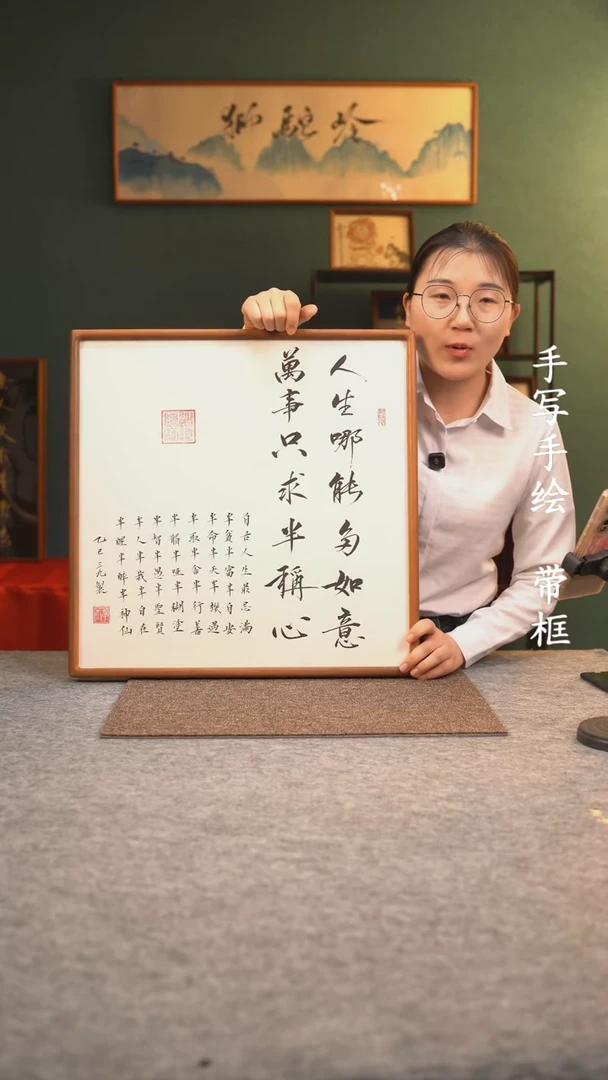 獅駝岭
人生哪能多如意
萬事只求半稱心
自古人生最忌滿
半貧半富半自安
半命半天半機遇
半取半舍半行善
半聾半啞半糊塗
半智半愚半聖賢
半人半我半自在
半醒半醉半神仙
乙巳三九製
手写手绘 带框